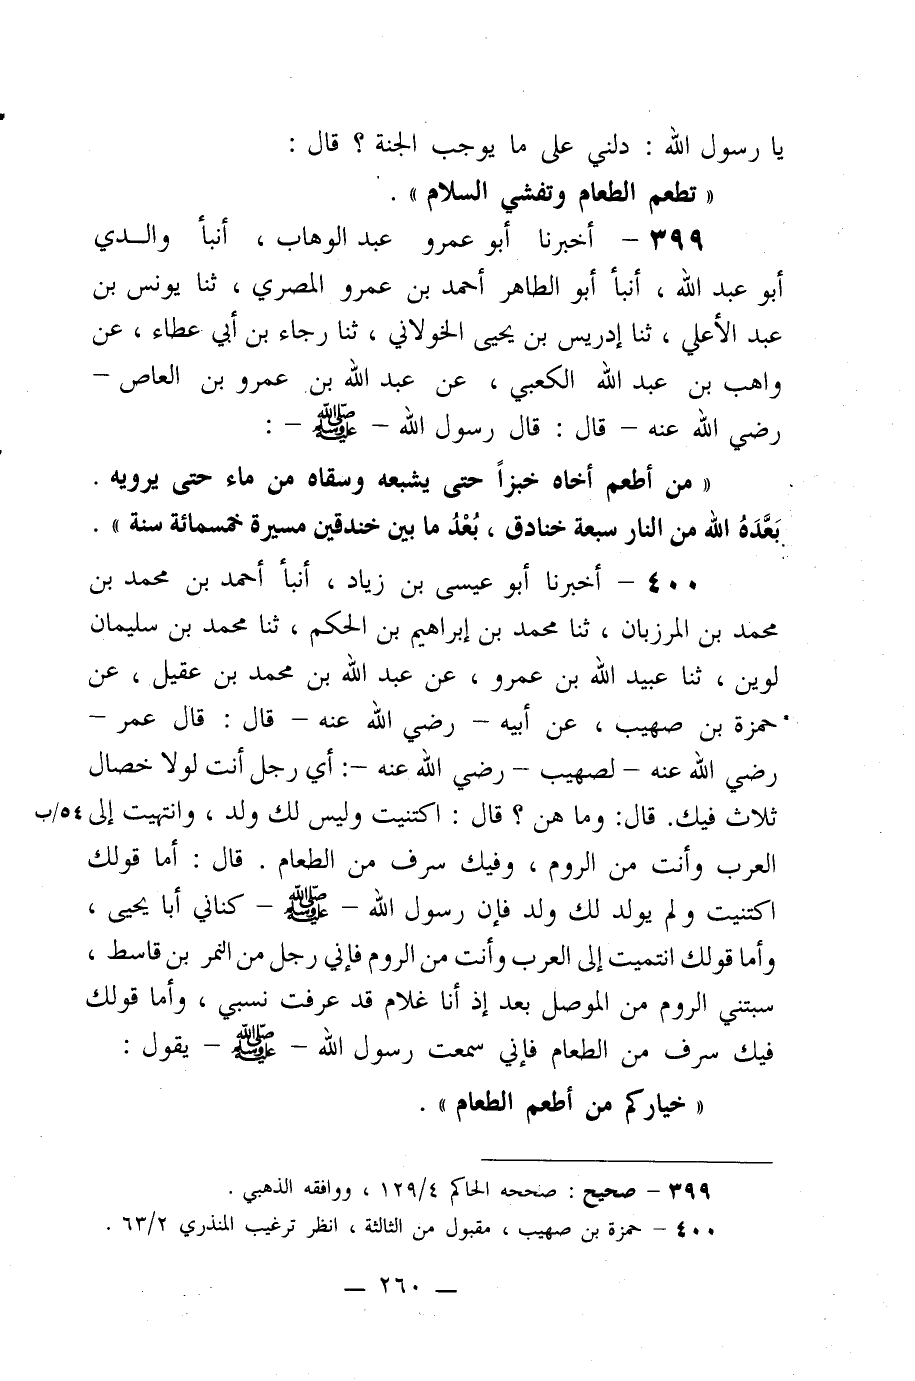 يا رسول الله : دلني على ما يوجب الجنة ؟ قال :
« تطعم الطعام وتفشي السلام » .
٣٩٩ – أخبرنا أبو عمرو عبد الوهاب ، أنبأ والـدي
أبو عبد الله ، أنبأ أبو الطاهر أحمد بن عمرو المصري ، ثنا يونس بن
عبد الأعلي ، ثنا إدريس بن يحيى الخولاني ، ثنا رجاء بن أبي عطاء ، عن
واهب بن عبد الله الكعبي ، عن عبد الله بن عمرو بن العاص –
رضي الله عنه – قال : قال رسول الله – ﷺ – :
« من أطعم أخاه خبزاً حتى يشبعه وسقاه من ماء حتى يرويه .
بَعَّدَهُ الله من النار سبعة خنادق ، بُعْدُ ما بين خندقين مسيرة خمسمائة سنة » .
٤٠٠ – أخبرنا أبو عيسى بن زياد ، أنبأ أحمد بن محمد بن
محمد بن المرزبان ، ثنا محمد بن إبراهيم بن الحكم ، ثنا محمد بن سليمان
لوين ، ثنا عبيد الله بن عمرو ، عن عبد الله بن محمد بن عقيل ، عن
حمزة بن صهيب ، عن أبيه – رضي الله عنه – قال : قال عمر –
رضي الله عنه – لصهيب – رضي الله عنه –: أي رجل أنت لولا خصال
ثلاث فيك. قال: وما هن ؟ قال : اكتنيت وليس لك ولد ، وانتهيت إلى ٥٤/ب
العرب وأنت من الروم ، وفيك سرف من الطعام . قال : أما قولك
اكتنيت ولم يولد لك ولد فإن رسول الله – ﷺ – كناني أبا يحيى ،
وأما قولك انتميت إلى العرب وأنت من الروم فإني رجل من النمر بن قاسط ،
سبتني الروم من الموصل بعد إذ أنا غلام قد عرفت نسبي ، وأما قولك
فيك سرف من الطعام فإني سمعت رسول الله – ﷺ – يقول :
« خياركم من أطعم الطعام » .
٣٩٩ – صحيح : صححه الحاكم ١٢٩/٤ ، ووافقه الذهبي .
٤٠٠ – حمزة بن صهيب ، مقبول من الثالثة ، انظر ترغيب المنذري ٦٣/٢ .
– ٢٦٠ –